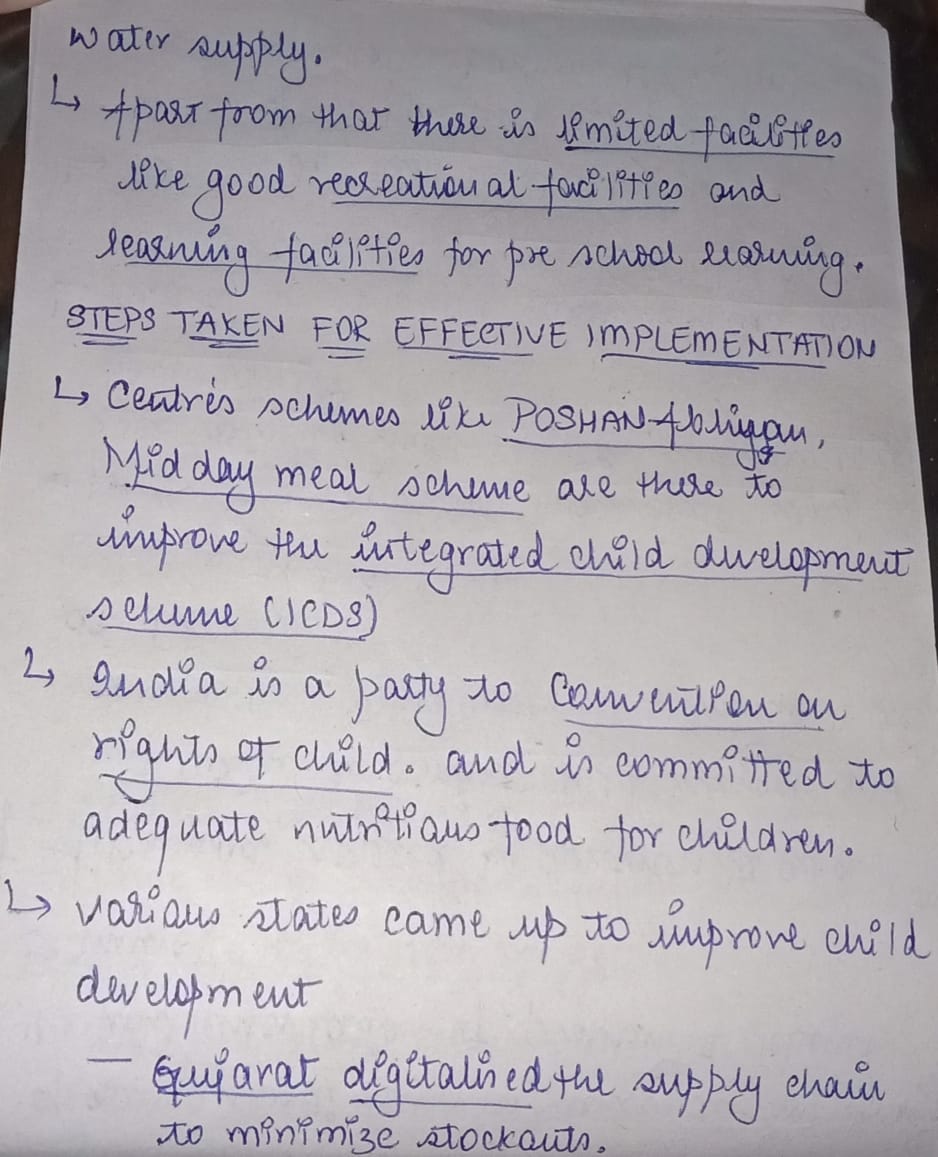 water supply.
↳ Apart from that there is limited facilities
like good recreational facilities and
learning facilities for pre school learning.
STEPS TAKEN FOR EFFECTIVE IMPLEMENTATION
↳ Centre's schemes like POSHAN Abhiyan,
Mid day meal scheme are there to
improve the integrated child development
scheme (ICDS)
↳ India is a party to Convention on
rights of child. and is committed to
adequate nutritious food for children.
↳ various states came up to improve child
development
— Gujarat digitalised the supply chain
to minimize stockouts.